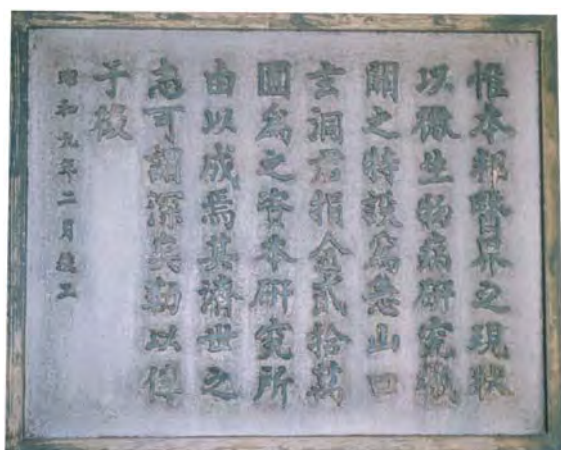 惟本邦醫界之現狀
以微生物病研究機
關之特設爲急山口
玄洞君捐金貳拾萬
圓為之資本研究所
由以成焉其濟世之
志可謂深矣勒以傳
于後
昭和九年二月竣工